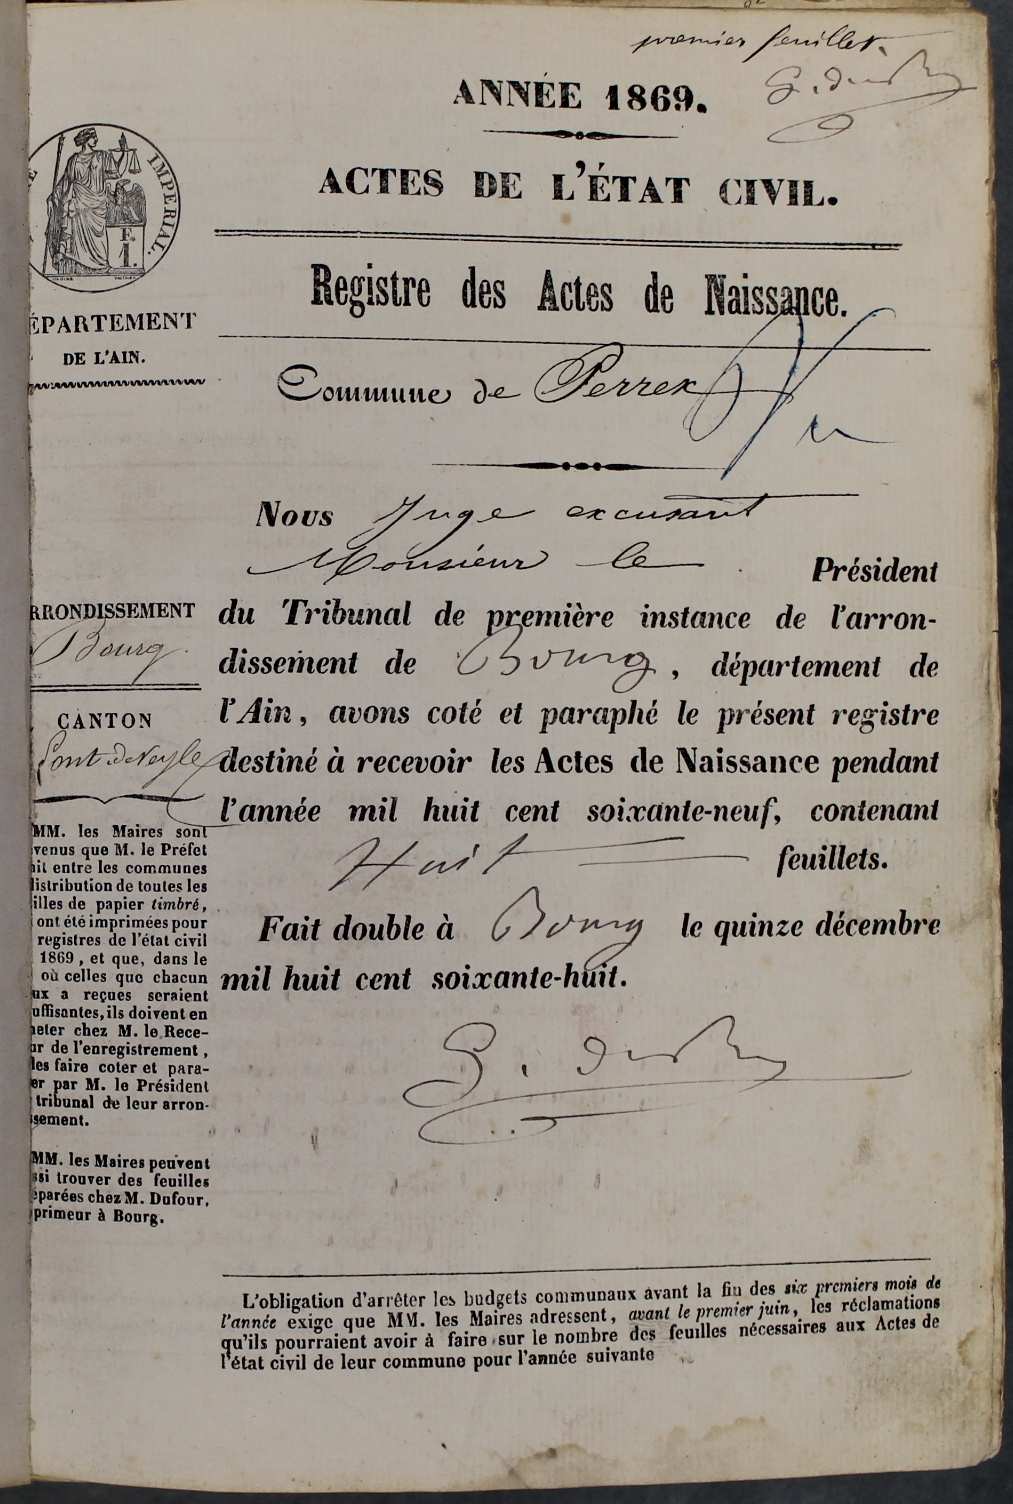 premier feuillet.
ANNÉE 1869.
ACTES DE L'ÉTAT CIVIL.
IMPERIAL.
F.
1.
ÉPARTEMENT
DE L'AIN.
Registre des Actes de Naissance.
Commune de Perrex
Vu
Nous Juge excusant
Monsieur le Président
du Tribunal de première instance de l'arron-
dissement de Bourg, département de
l'Ain, avons coté et paraphé le présent registre
destiné à recevoir les Actes de Naissance pendant
l'année mil huit cent soixante-neuf, contenant
Huit feuillets.
Fait double à Bourg le quinze décembre
mil huit cent soixante-huit.
RRONDISSEMENT
Bourg
CANTON
Pont-de-Veyle
MM. les Maires sont
venus que M. le Préfet
ait entre les communes
distribution de toutes les
illes de papier timbré,
ont été imprimées pour
registres de l'état civil
1869, et que, dans le
où celles que chacun
ux a reçues seraient
uffisantes, ils doivent en
heter chez M. le Rece-
ur de l'enregistrement,
les faire coter et para-
er par M. le Président
tribunal de leur arron-
ssement.
MM. les Maires peuvent
ssi trouver des feuilles
éparées chez M. Dufour,
primeur à Bourg.
L'obligation d'arrêter les budgets communaux avant la fin des six premiers mois de
l'année exige que MM. les Maires adressent, avant le premier juin, les réclamations
qu'ils pourraient avoir à faire sur le nombre des feuilles nécessaires aux Actes de
l'état civil de leur commune pour l'année suivante